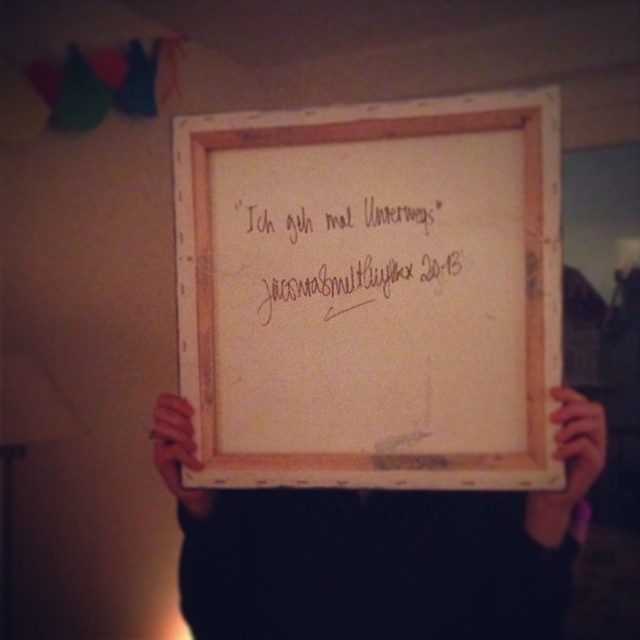 "Ich geh mal Unterwegs"
2013